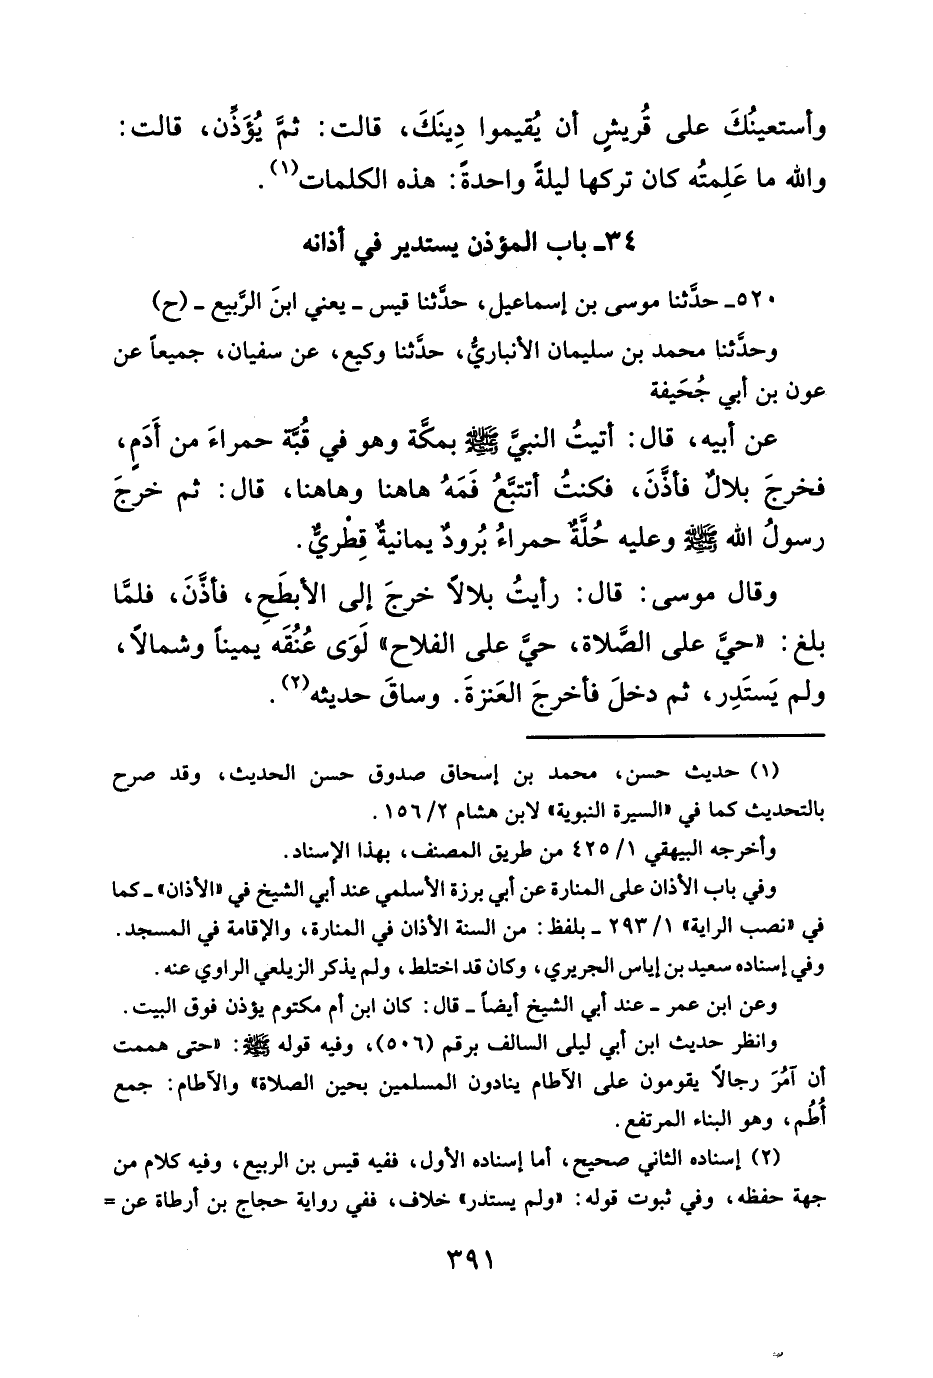 وأستعينُكَ على قُريشٍ أن يُقيموا دِينَكَ، قالت: ثمَّ يُؤَذِّن، قالت:
والله ما عَلِمتُه كان تركها ليلةً واحدةً: هذه الكلمات(١).
٣٤ـ باب المؤذن يستدير في أذانه
٥٢٠ـ حدَّثنا موسى بن إسماعيل، حدَّثنا قيس ـ يعني ابنَ الرَّبيع ـ (ح)
وحدَّثنا محمد بن سليمان الأنباريُّ، حدَّثنا وكيع، عن سفيان، جميعاً عن
عون بن أبي جُحَيفة
عن أبيه، قال: أتيتُ النبيَّ ﷺ بمكَّة وهو في قُبَّة حمراءَ من أَدَمٍ،
فخرجَ بلالٌ فأذَّنَ، فكنتُ أتتبَّعُ فَمَهُ هاهنا وهاهنا، قال: ثم خرجَ
رسولُ الله ﷺ وعليه حُلَّةٌ حمراءُ بُرودٌ يمانيةٌ قِطْريٌّ.
وقال موسى: قال: رأيتُ بلالاً خرجَ إلى الأبطَحِ، فأذَّنَ، فلمَّا
بلغ: «حيَّ على الصَّلاة، حيَّ على الفلاح» لَوَى عُنُقَه يميناً وشمالاً،
ولم يَستَدِر، ثم دخلَ فأخرجَ العَنزةَ. وساقَ حديثه(٢).
(١) حديث حسن، محمد بن إسحاق صدوق حسن الحديث، وقد صرح
بالتحديث كما في «السيرة النبوية» لابن هشام ٢/ ١٥٦.
وأخرجه البيهقي ١/ ٤٢٥ من طريق المصنف، بهذا الإسناد.
وفي باب الأذان على المنارة عن أبي برزة الأسلمي عند أبي الشيخ في «الأذان» ـ كما
في «نصب الراية» ١/ ٢٩٣ ـ بلفظ: من السنة الأذان في المنارة، والإقامة في المسجد.
وفي إسناده سعيد بن إياس الجريري، وكان قد اختلط، ولم يذكر الزيلعي الراوي عنه.
وعن ابن عمر ـ عند أبي الشيخ أيضاً ـ قال: كان ابن أم مكتوم يؤذن فوق البيت.
وانظر حديث ابن أبي ليلى السالف برقم (٥٠٦)، وفيه قوله ﷺ: «حتى هممت
أن آمُرَ رجالاً يقومون على الآطام ينادون المسلمين بحين الصلاة» والآطام: جمع
أُطُم، وهو البناء المرتفع.
(٢) إسناده الثاني صحيح، أما إسناده الأول، ففيه قيس بن الربيع، وفيه كلام من
جهة حفظه، وفي ثبوت قوله: «ولم يستدر» خلاف، ففي رواية حجاج بن أرطاة عن =
٣٩١